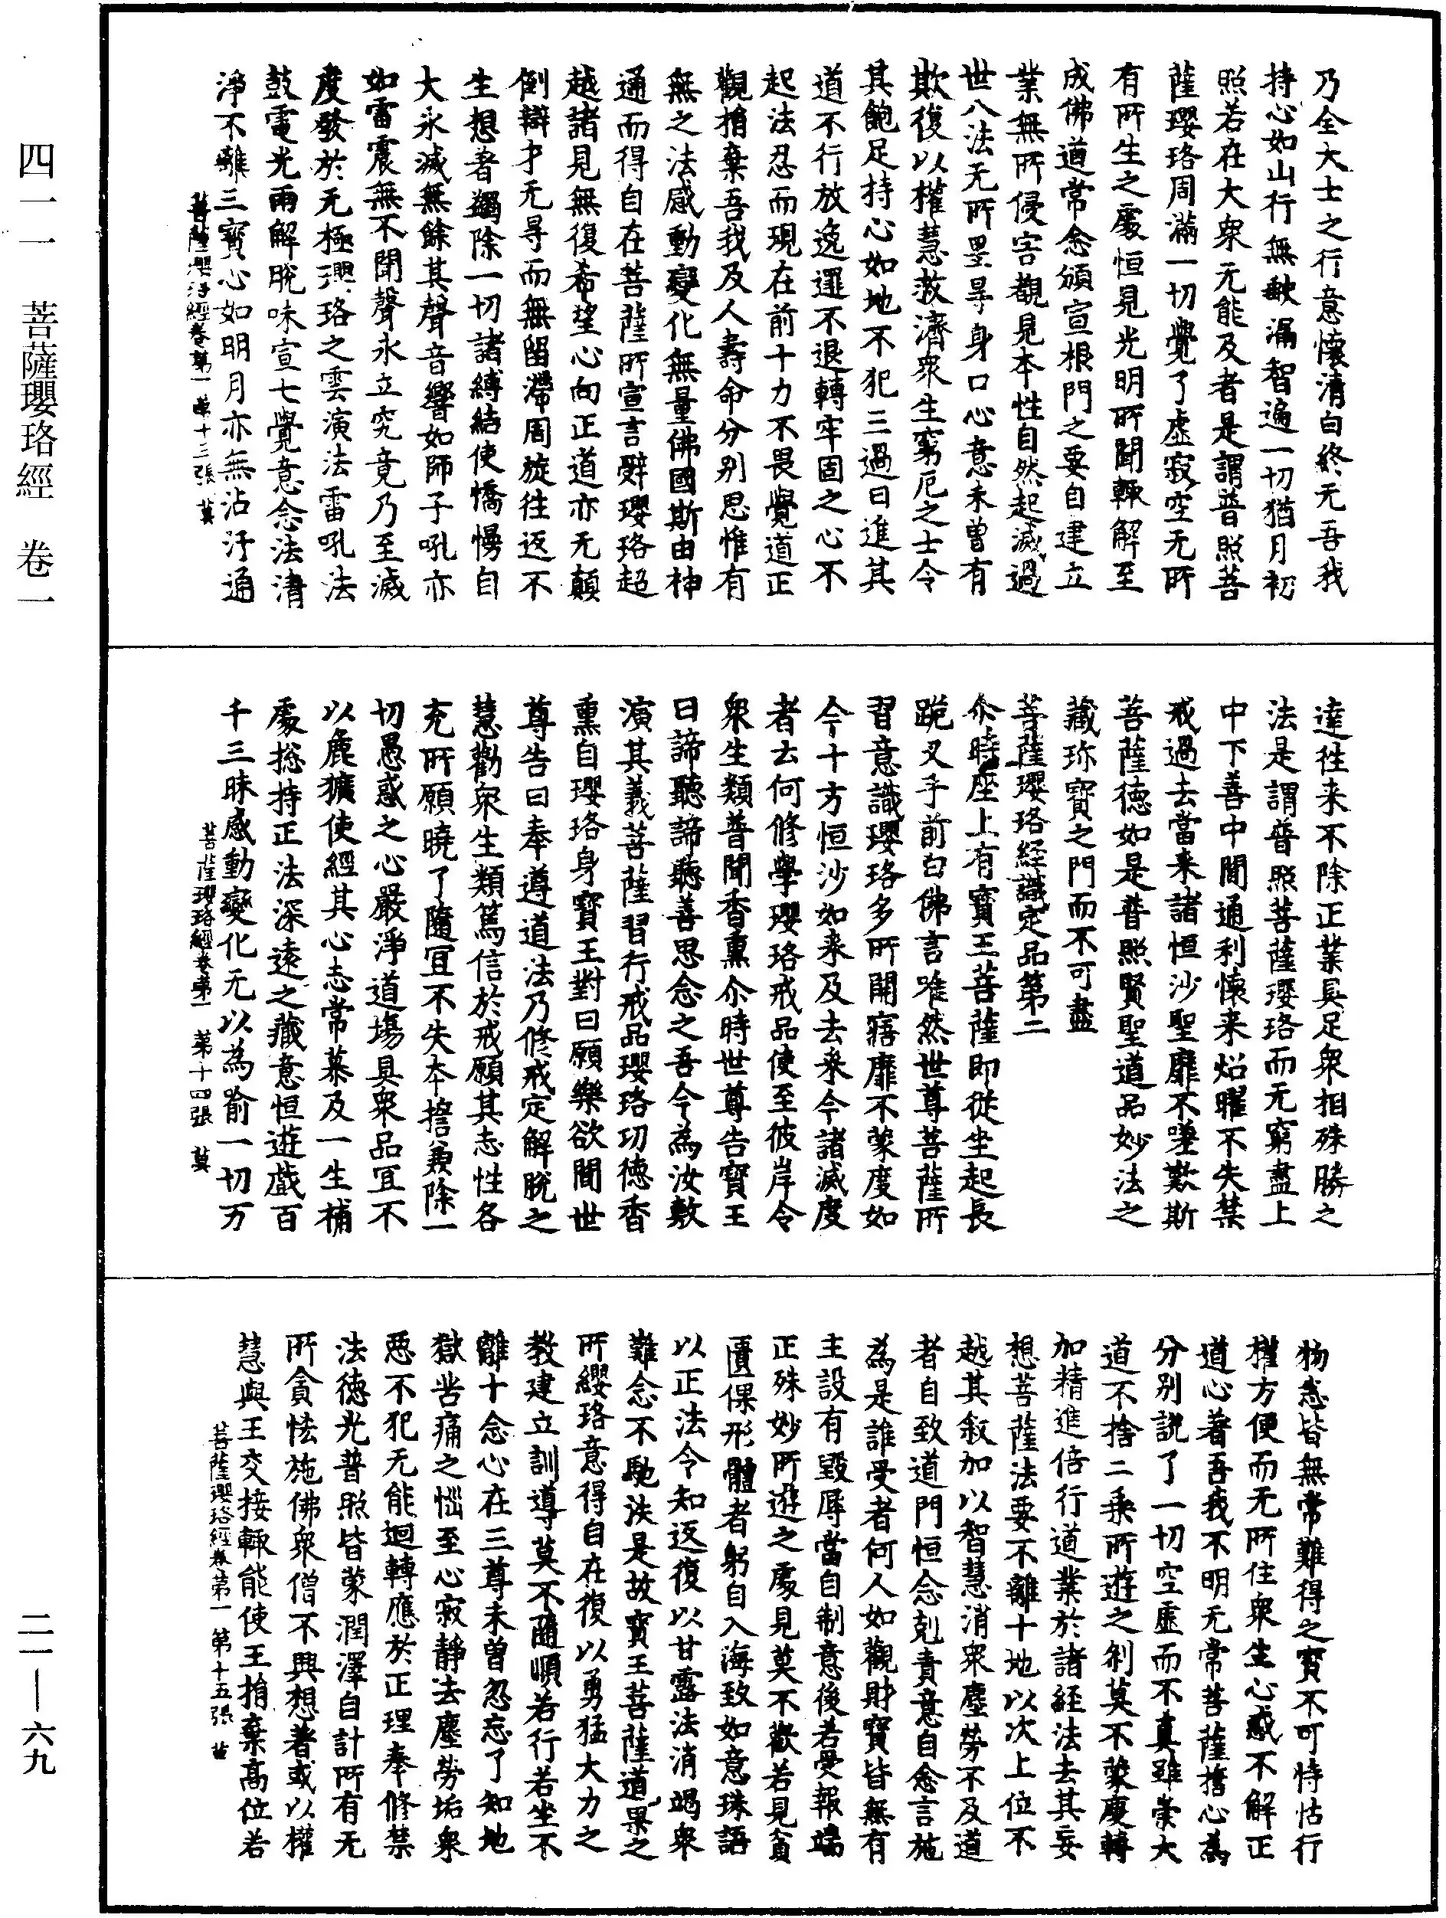 乃全大士之行意懷清白終无吾我
持心如山行無缺漏智遍一切猶月初
照若在大衆无能及者是謂普照菩
薩瓔珞周滿一切覺了虛寂空无所
有所生之處恒見光明所聞輒解至
成佛道常念頒宣根門之要自建立
業無所侵害觀見本性自然起滅過
世八法无所罣㝵身口心意未曾有
欺復以權慧救濟衆生窮厄之士令
其飽足持心如地不犯三過日進其
道不行放逸還不退轉牢固之心不
起法忍而現在前十力不畏覺道正
觀捐棄吾我及人壽命分別思惟有
無之法感動變化無量佛國斯由神
通而得自在菩薩所宣言辭瓔珞超
越諸見無復希望心向正道亦无顛
倒辯才无㝵而無留滯周旋往返不
生想著蠲除一切諸縛結使憍慢自
大永滅無餘其聲音響如師子吼亦
如雷震無不聞聲永立究竟乃至滅
度發於无極瓔珞之雲演法雷吼法
鼓電光雨解脫味宣七覺意念法清
淨不離三寶心如明月亦無沾汙通
菩薩瓔珞經卷第一 第十三張 莫
達往來不除正業具足衆相殊勝之
法是謂普照菩薩瓔珞而无窮盡上
中下善中間通利懷來炤曜不失禁
戒過去當来諸恒沙聖靡不嗟歎斯
菩薩德如是普照賢聖道品妙法之
藏珎寶之門而不可盡
菩薩瓔珞經識定品第二
尒時座上有寶王菩薩即從坐起長
跪叉手前白佛言唯然世尊菩薩所
習意識瓔珞多所開寤靡不蒙度如
今十方恒沙如来及去来今諸滅度
者云何修學瓔珞戒品使至彼岸令
衆生類普聞香熏尒時世尊告寶王
曰諦聽諦聽善思念之吾今為汝敷
演其義菩薩習行戒品瓔珞功德香
熏自瓔珞身寶王對曰願樂欲聞世
尊告曰奉遵道法乃修戒定解脫之
慧勸衆生類篤信於戒願其志性各
充所願曉了隨宜不失本擔兼除一
切愚惑之心嚴淨道場具衆品宜不
以麁獷使經其心志常慕及一生補
處捴持正法深遠之藏意恒遊戲百
千三昧感動變化无以為喻一切万
菩薩瓔珞經卷第一 第十四張 莫
物悉皆無常難得之寶不可恃怙行
權方便而无所住衆生心惑不解正
道心著吾我不明无常菩薩擔心為
分別說了一切空虛而不真雖崇大
道不捨二乘所遊之刹莫不蒙度轉
加精進倍行道業於諸經法去其妄
想菩薩法要不離十地以次上位不
越其叙加以智慧消衆塵勞不及道
者自致道門恒念剋責意自念言施
為是誰受者何人如觀財寶皆無有
主設有毀辱當自制意後若受報端
正殊妙所遊之處見莫不歡若見貧
匱倮形體者躬自入海致如意珠語
以正法令知返復以甘露法消竭衆
難念不馳法是故寶王菩薩道果之
所纓珞意得自在復以勇猛大力之
教建立訓導莫不隨順若行若坐不
離十念心在三尊未曾忽忘了知地
獄苦痛之惱至心寂靜法塵勞垢衆
惡不犯无能迴轉應於正理奉修禁
法德光普照皆蒙潤澤自計所有无
所貪怯施佛衆僧不興想著或以權
慧與王交接輒能使王捐棄高位若
菩薩瓔珞經卷第一 第十五張 莫
四一一 菩薩瓔珞經 卷一
二一—六九